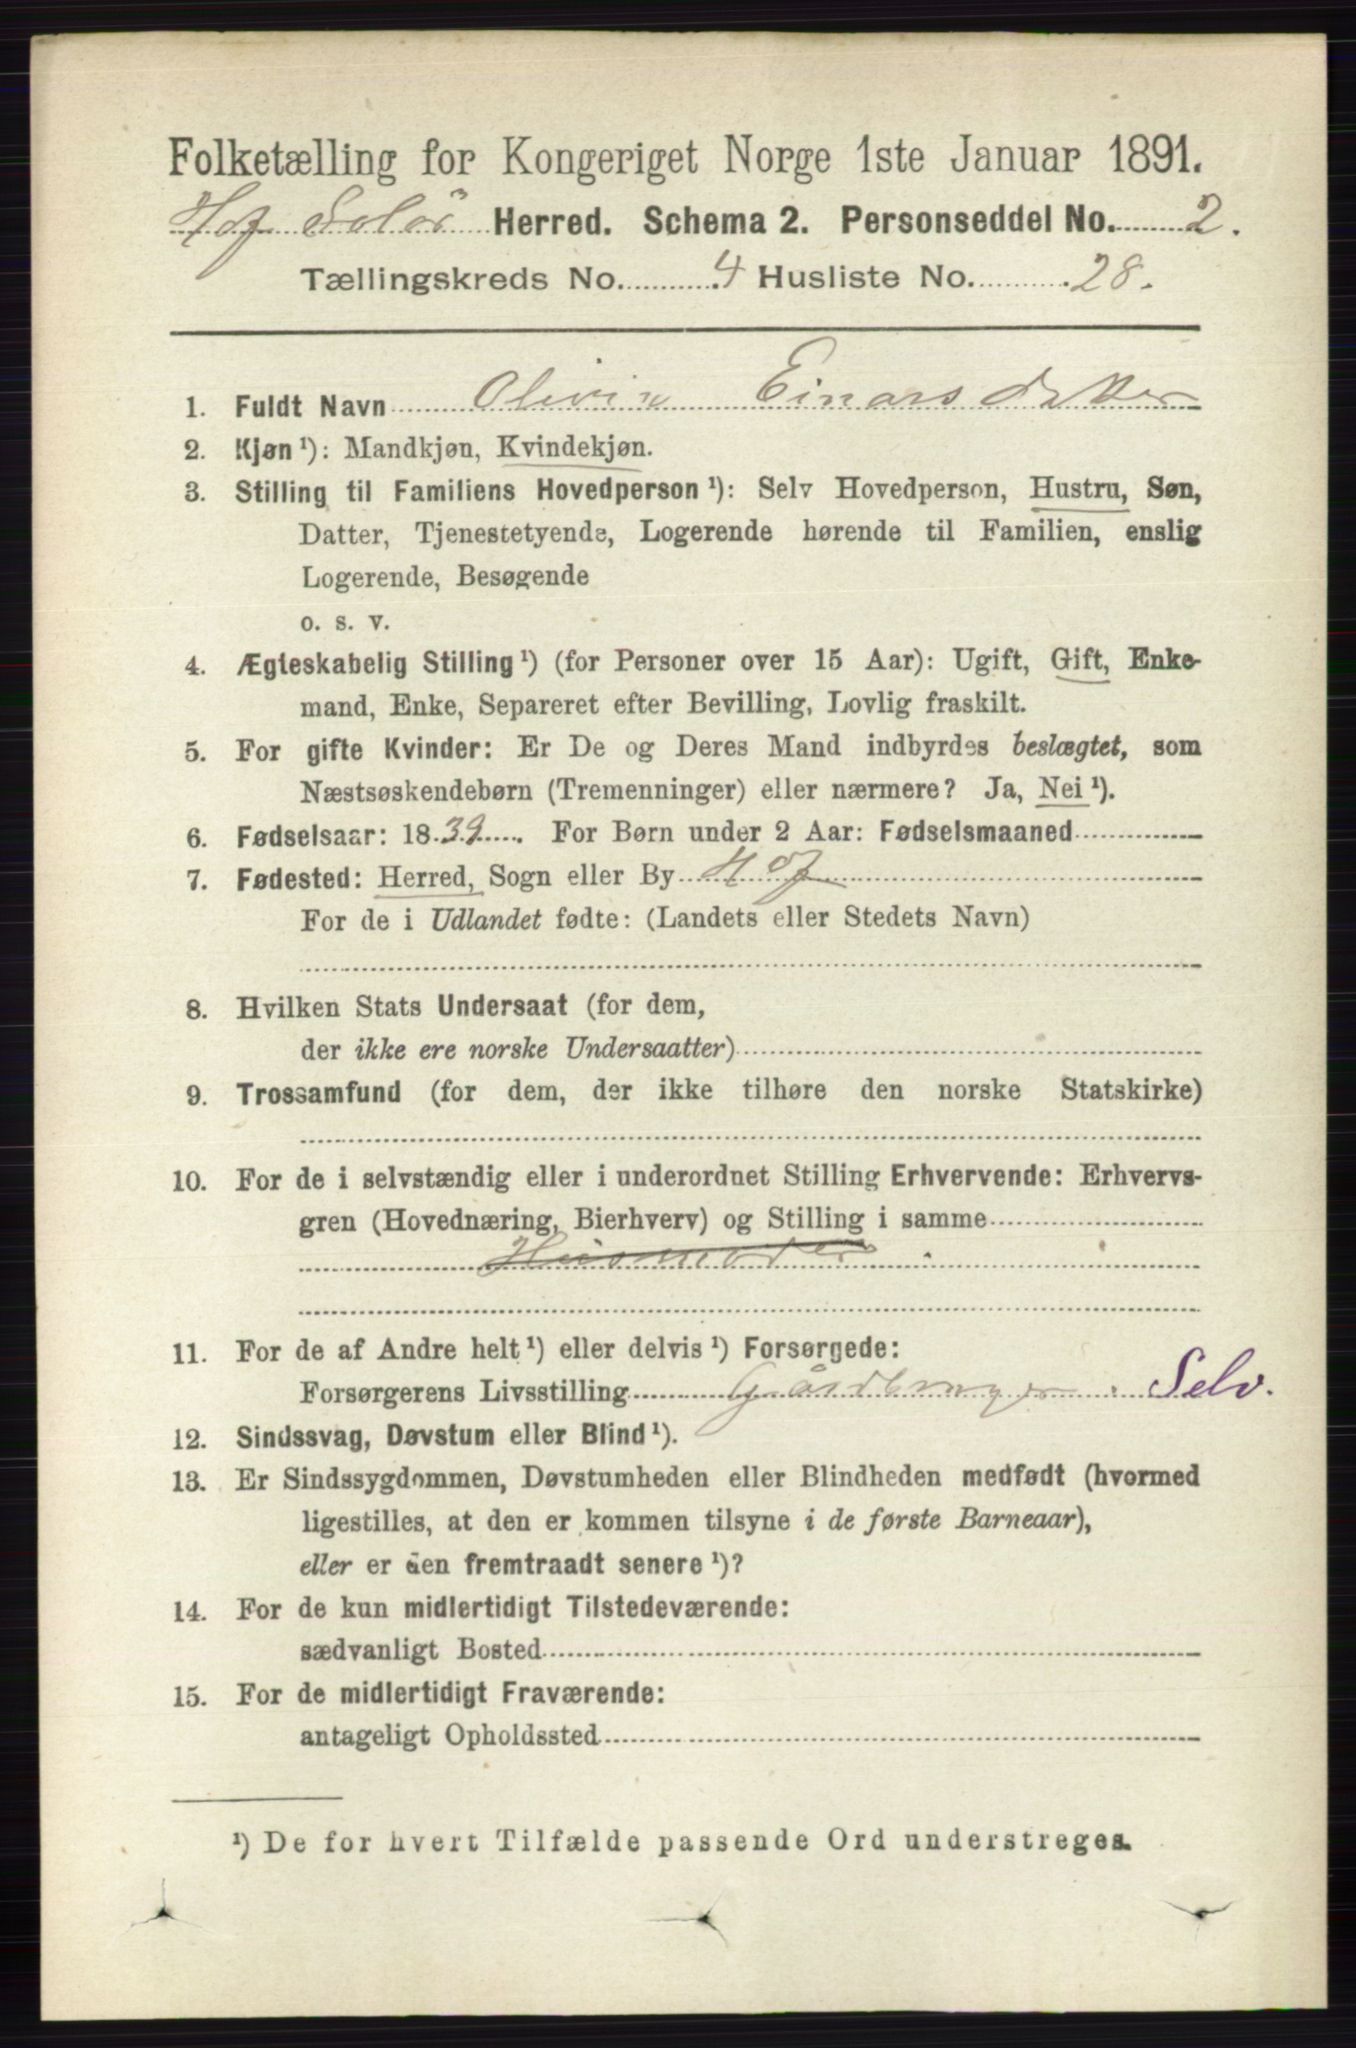 Folketælling for Kongeriget Norge 1ste Januar 1891.
Hof Solør Herred. Schema 2. Personseddel No. 2.
Tællingskreds No. 4 Husliste No. 28.
1. Fuldt Navn Olivia Einarsdatter
2. Kjøn¹): Mandkjøn, Kvindekjøn.
3. Stilling til Familiens Hovedperson¹): Selv Hovedperson, Hustru, Søn,
Datter, Tjenestetyende, Logerende hørende til Familien, enslig
Logerende, Besøgende
o. s. v.
4. Ægteskabelig Stilling¹) (for Personer over 15 Aar): Ugift, Gift, Enke-
mand, Enke, Separeret efter Bevilling, Lovlig fraskilt.
5. For gifte Kvinder: Er De og Deres Mand indbyrdes beslægtet, som
Næstsøskendebørn (Tremenninger) eller nærmere? Ja, Nei¹).
6. Fødselsaar: 1839. For Børn under 2 Aar: Fødselsmaaned
7. Fødested: Herred, Sogn eller By Hof
For de i Udlandet fødte: (Landets eller Stedets Navn)
8. Hvilken Stats Undersaat (for dem,
der ikke ere norske Undersaatter)
9. Trossamfund (for dem, der ikke tilhøre den norske Statskirke)
10. For de i selvstændig eller i underordnet Stilling Erhvervende: Erhvervs-
gren (Hovednæring, Bierhverv) og Stilling i samme
Husmoder
11. For de af Andre helt¹) eller delvis¹) Forsørgede:
Forsørgerens Livsstilling Gårdbruger. Selv.
12. Sindssvag, Døvstum eller Blind¹).
13. Er Sindssygdommen, Døvstumheden eller Blindheden medfødt (hvormed
ligestilles, at den er kommen tilsyne i de første Barneaar),
eller er den fremtraadt senere¹)?
14. For de kun midlertidigt Tilstedeværende:
sædvanligt Bosted
15. For de midlertidigt Fraværende:
antageligt Opholdssted
¹) De for hvert Tilfælde passende Ord understreges.